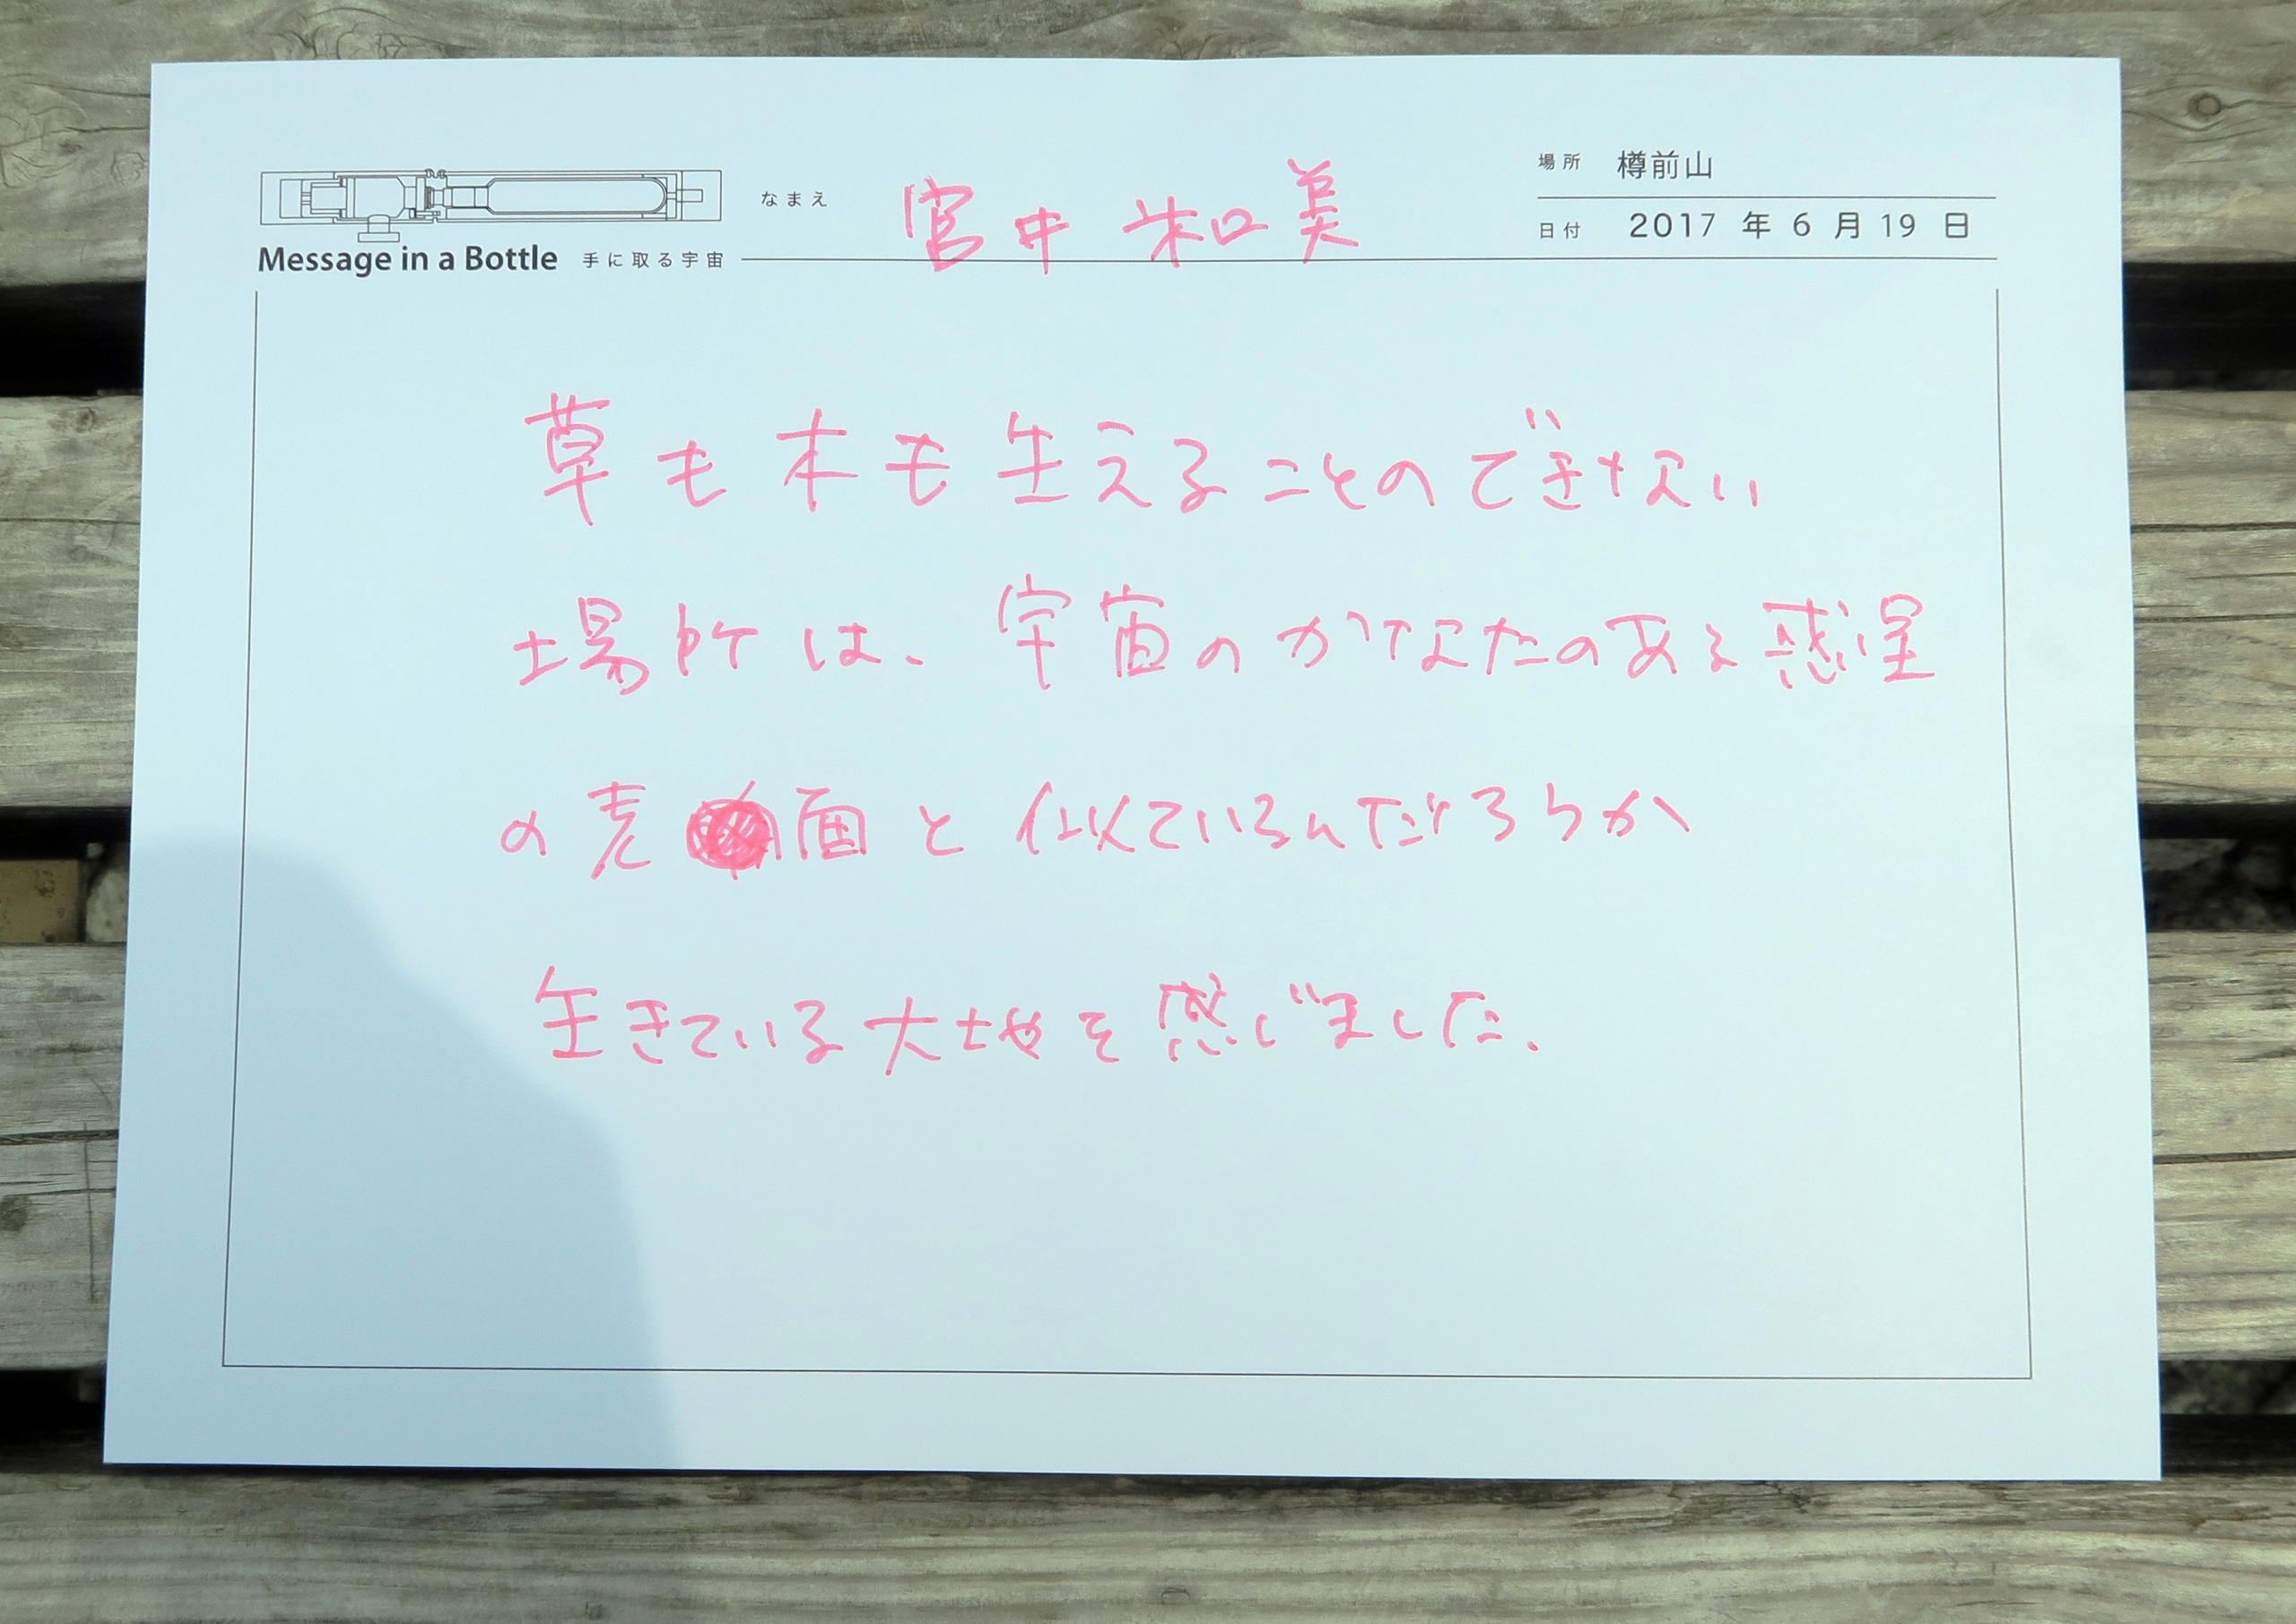 なまえ 宮井 和美
場所 樽前山
日付 2017 年 6 月 19 日
Message in a Bottle 手に取る宇宙
草も木も生えることのできない
場所は、宇宙のかなたのある惑星
の表面と似ているんだろうか
生きている大地を感じました。